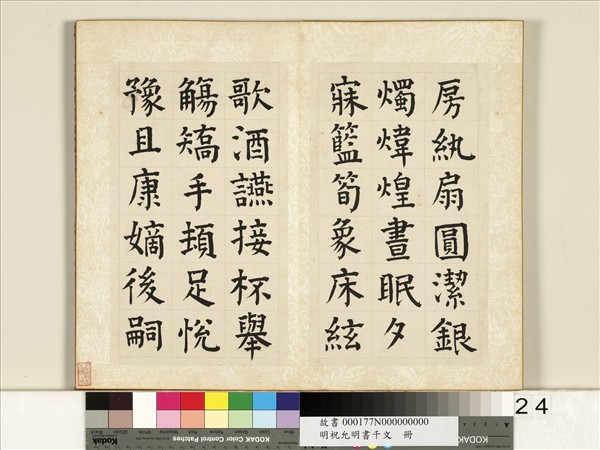 房紈扇圓潔銀
燭煒煌晝眠夕
寐籃筍象床絃
歌酒讌接杯舉
觴矯手頓足悅
豫且康嫡後嗣
24
故書 000177N000000000
明祝允明書千文 冊
Kodak
KODAK Color Control Patches